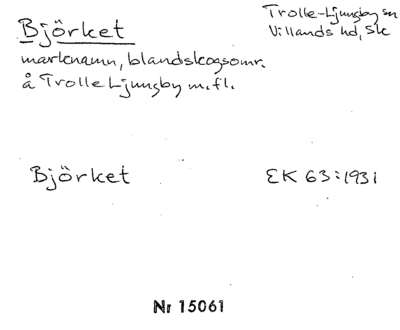 Björket
Trolle-Ljungby sn
Villands hd, Sk
marknamn, blandskogsomr.
å Trolle Ljungby m.fl.
Björket
EK 63:1931
Nr 15061